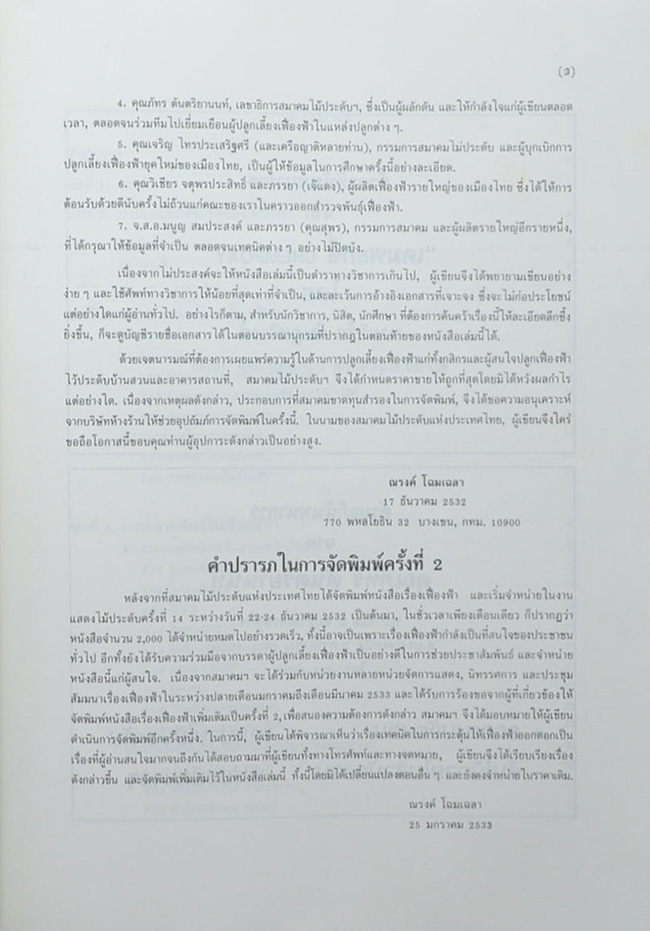 (3)
4. คุณภัทร ตันตริยานนท์, เลขาธิการสมาคมไม้ประดับฯ, ซึ่งเป็นผู้ผลักดัน และให้กำลังใจแก่ผู้เขียนตลอด
เวลา, ตลอดจนร่วมทีมไปเยี่ยมเยือนผู้ปลูกเลี้ยงเฟื่องฟ้าในแหล่งปลูกต่าง ๆ.
5. คุณเจริญ ไทรประเสริฐศรี (และเครือญาติหลายท่าน), กรรมการสมาคมไม้ประดับ และผู้บุกเบิกการ
ปลูกเลี้ยงเฟื่องฟ้ายุคใหม่ของเมืองไทย, เป็นผู้ให้ข้อมูลในการศึกษาครั้งนี้อย่างละเอียด.
6. คุณวิเชียร จตุพรประสิทธิ์ และภรรยา (เจ๊แดง), ผู้ผลิตเฟื่องฟ้ารายใหญ่ของเมืองไทย ซึ่งได้ให้การ
ต้อนรับด้วยดีนับครั้งไม่ถ้วนแก่คณะของเราในคราวออกสำรวจพันธุ์เฟื่องฟ้า.
7. จ.ส.อ.มนูญ สมประสงค์ และภรรยา (คุณสุพร), กรรมการสมาคม และผู้ผลิตรายใหญ่อีกรายหนึ่ง,
ที่ได้กรุณาให้ข้อมูลที่จำเป็น ตลอดจนเทคนิคต่าง ๆ อย่างไม่ปิดบัง.
เนื่องจากไม่ประสงค์จะให้หนังสือเล่มนี้เป็นตำราทางวิชาการเกินไป, ผู้เขียนจึงได้พยายามเขียนอย่าง
ง่าย ๆ และใช้ศัพท์ทางวิชาการให้น้อยที่สุดเท่าที่จำเป็น, และละเว้นการอ้างอิงเอกสารที่เจาะจง ซึ่งจะไม่ก่อประโยชน์
แต่อย่างใดแก่ผู้อ่านทั่วไป. อย่างไรก็ตาม, สำหรับนักวิชาการ, นิสิต, นักศึกษา ที่ต้องการค้นคว้าเรื่องนี้ให้ละเอียดลึกซึ้ง
ยิ่งขึ้น, ก็จะดูบัญชีรายชื่อเอกสารได้ในตอนบรรณานุกรมที่ปรากฏในตอนท้ายของหนังสือเล่มนี้ได้.
ด้วยเจตนารมณ์ที่ต้องการเผยแพร่ความรู้ในด้านการปลูกเลี้ยงเฟื่องฟ้าแก่ทั้งกสิกรและผู้สนใจปลูกเฟื่องฟ้า
ไว้ประดับบ้านสวนและอาคารสถานที่, สมาคมไม้ประดับฯ จึงได้กำหนดราคาขายให้ถูกที่สุดโดยมิได้หวังผลกำไร
แต่อย่างใด. เนื่องจากเหตุผลดังกล่าว, ประกอบการที่สมาคมขาดทุนสำรองในการจัดพิมพ์, จึงได้ขอความอนุเคราะห์
จากบริษัทห้างร้านให้ช่วยอุปถัมภ์การจัดพิมพ์ในครั้งนี้. ในนามของสมาคมไม้ประดับแห่งประเทศไทย, ผู้เขียนจึงใคร่
ขอถือโอกาสนี้ขอบคุณท่านผู้อุปการะดังกล่าวเป็นอย่างสูง.
ณรงค์ โฉมเฉลา
17 ธันวาคม 2532
770 พหลโยธิน 32 บางเขน, กทม. 10900
คำปรารภในการจัดพิมพ์ครั้งที่ 2
หลังจากที่สมาคมไม้ประดับแห่งประเทศไทยได้จัดพิมพ์หนังสือเรื่องเฟื่องฟ้า และเริ่มจำหน่ายในงาน
แสดงไม้ประดับครั้งที่ 14 ระหว่างวันที่ 22-24 ธันวาคม 2532 เป็นต้นมา, ในชั่วเวลาเพียงเดือนเดียว ก็ปรากฏว่า
หนังสือจำนวน 2,000 ได้จำหน่ายหมดไปอย่างรวดเร็ว, ทั้งนี้อาจเป็นเพราะเรื่องเฟื่องฟ้ากำลังเป็นที่สนใจของประชาชน
ทั่วไป อีกทั้งยังได้รับความร่วมมือจากบรรดาผู้ปลูกเลี้ยงเฟื่องฟ้าเป็นอย่างดีในการช่วยประชาสัมพันธ์ และจำหน่าย
หนังสือนี้แก่ผู้สนใจ. เนื่องจากสมาคมฯ จะได้ร่วมกับหน่วยงานหลายหน่วยจัดการแสดง, นิทรรศการ และประชุม
สัมมนาเรื่องเฟื่องฟ้าในระหว่างปลายเดือนมกราคมถึงเดือนมีนาคม 2533 และได้รับการร้องขอจากผู้ที่เกี่ยวข้องให้
จัดพิมพ์หนังสือเรื่องเฟื่องฟ้าเพิ่มเติมเป็นครั้งที่ 2, เพื่อสนองความต้องการดังกล่าว สมาคมฯ จึงได้มอบหมายให้ผู้เขียน
ดำเนินการจัดพิมพ์อีกครั้งหนึ่ง. ในการนี้, ผู้เขียนได้พิจารณาเห็นว่าเรื่องเทคนิคในการกระตุ้นให้เฟื่องฟ้าออกดอกเป็น
เรื่องที่ผู้อ่านสนใจมากจนถึงกับได้สอบถามมาที่ผู้เขียนทั้งทางโทรศัพท์และทางจดหมาย, ผู้เขียนจึงได้เรียบเรียงเรื่อง
ดังกล่าวขึ้น และจัดพิมพ์เพิ่มเติมไว้ในหนังสือเล่มนี้ ทั้งนี้โดยมิได้เปลี่ยนแปลงตอนอื่น ๆ และยังคงจำหน่ายในราคาเดิม.
ณรงค์ โฉมเฉลา
25 มกราคม 2533